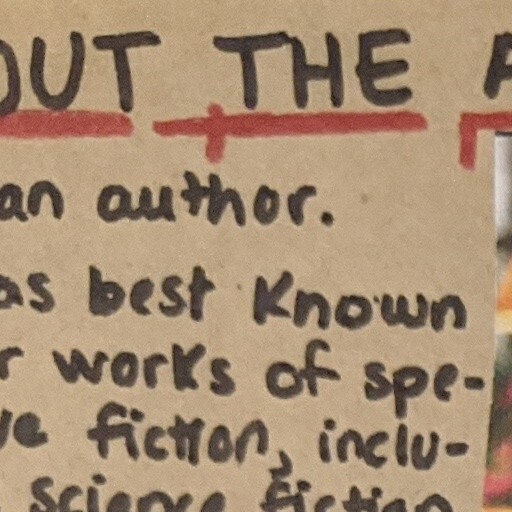 OUT THE A
an author.
as best known
r works of spe-
ve fiction, inclu-
science fiction